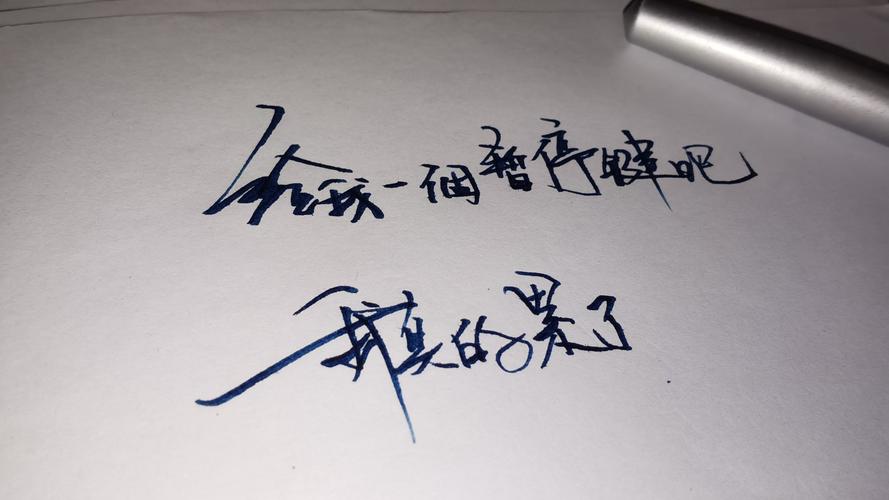 给我一個暂停键吧
我真的累了